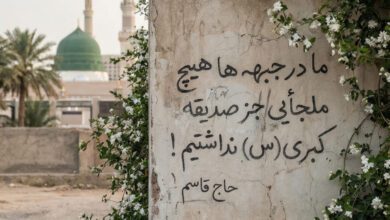 ما در جبهه ها هیچ
ملجأیی جز صدیقه
کبری (س) نداشتیم!
حاج قاسم!